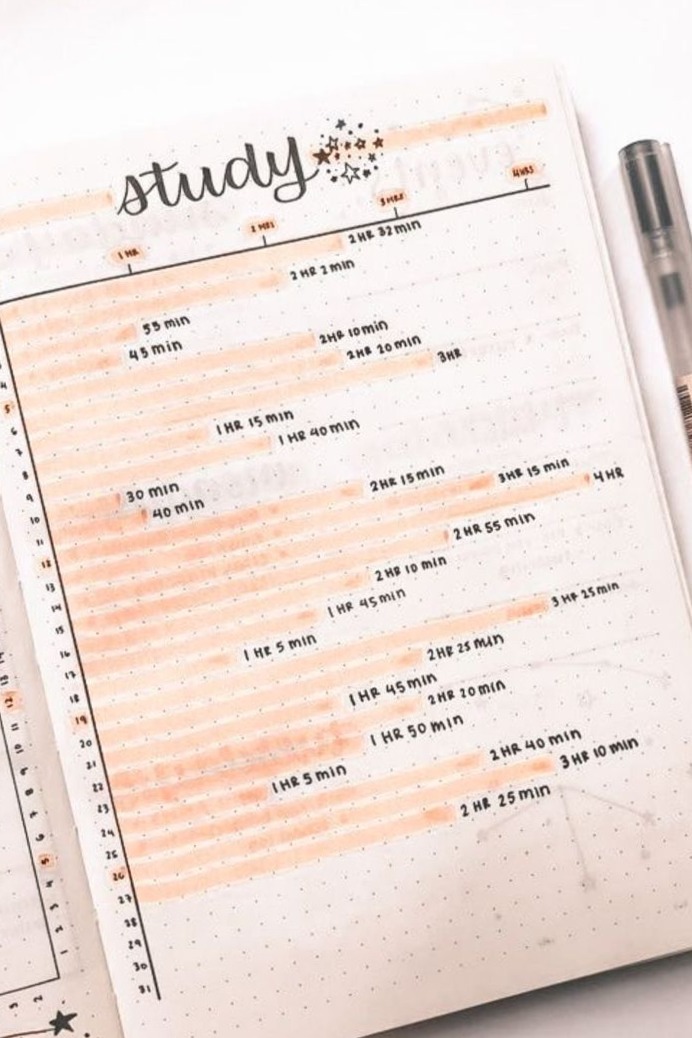 study
1 HR 2 HRS 3 HRS 4 HRS
2 HR 32 min
2 HR 2 min
55 min
4 45 min
5 2HR 10 min
6 2HR 20 min
7 3HR
8 1 HR 15 min
9 1 HR 40 min
10 30 min
11 40 min
12 2HR 15 min
13 3HR 15 min
14 4 HR
15 2 HR 55 min
16 2 HR 10 min
17 1 HR 45 min
18 1 HR 5 min
19 3 HR 25 min
20 2HR 25 min
21 1 HR 45 min
22 2HR 20 min
23 1 HR 50 min
24 1 HR 5 min
25 2 HR 40 min
26 3 HR 10 min
27 2 HR 25 min
28
29
30
31